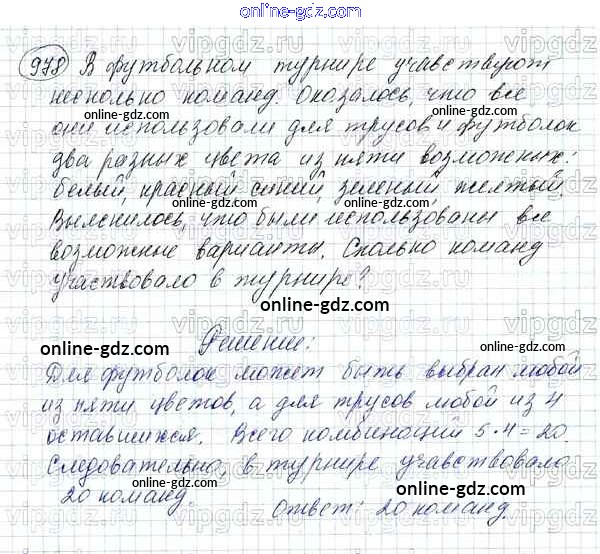 online-gdz.com
978 В футбольном турнире учавствуют
несколько команд. Оказалось, что все
они использовали для трусов и футболок
два разных цвета из пяти возможных:
белый, красный, синий, зеленый, желтый.
Выяснилось, что были использованы все
возможные варианты. Сколько команд
участвовало в турнире?
online-gdz.com
Решение:
online-gdz.com
online-gdz.com
Для футболок может быть выбран любой
из пяти цветов, а для трусов любой из 4
online-gdz.com
оставшихся. Всего комбинаций 5·4=20.
Следовательно, в турнире учавствовало
20 команд.
online-gdz.com
Ответ: 20 команд.